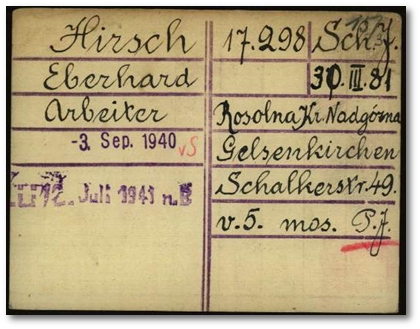 Hirsch
Eberhard
Arbeiter
-3. Sep. 1940
vS
12. Juli 1941 n.B
17.298 Sch.J.
30.III.81
Rosolna Kr. Nadgórna
Gelsenkirchen
Schalkerstr. 49.
v.5. mos. P.J.